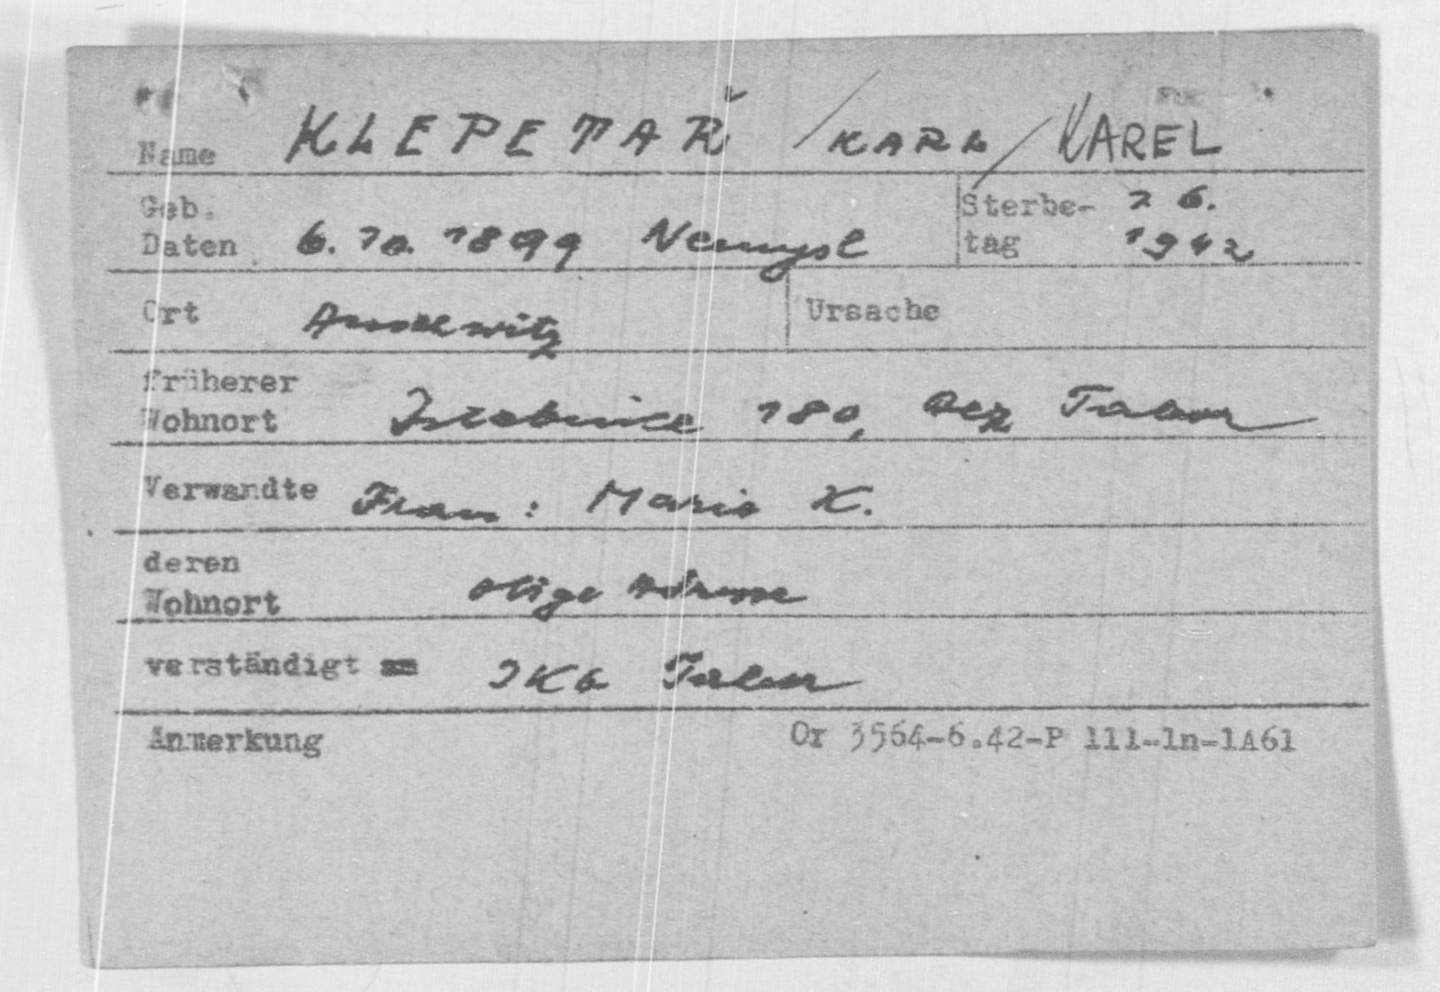 Name KLEPETAŘ / KARL / KAREL
Geb. Daten 6. 10. 1899 Nemysl
Sterbe-tag 2 6. 1942
Ort Auschwitz
Ursache
früherer
Wohnort 180, Bez Tabor
Verwandte Frau: Marie K.
deren
Wohnort obige Adresse
verständigt am IKG Tabor
Anmerkung Or 3564-6.42-P 111-1n-1A61